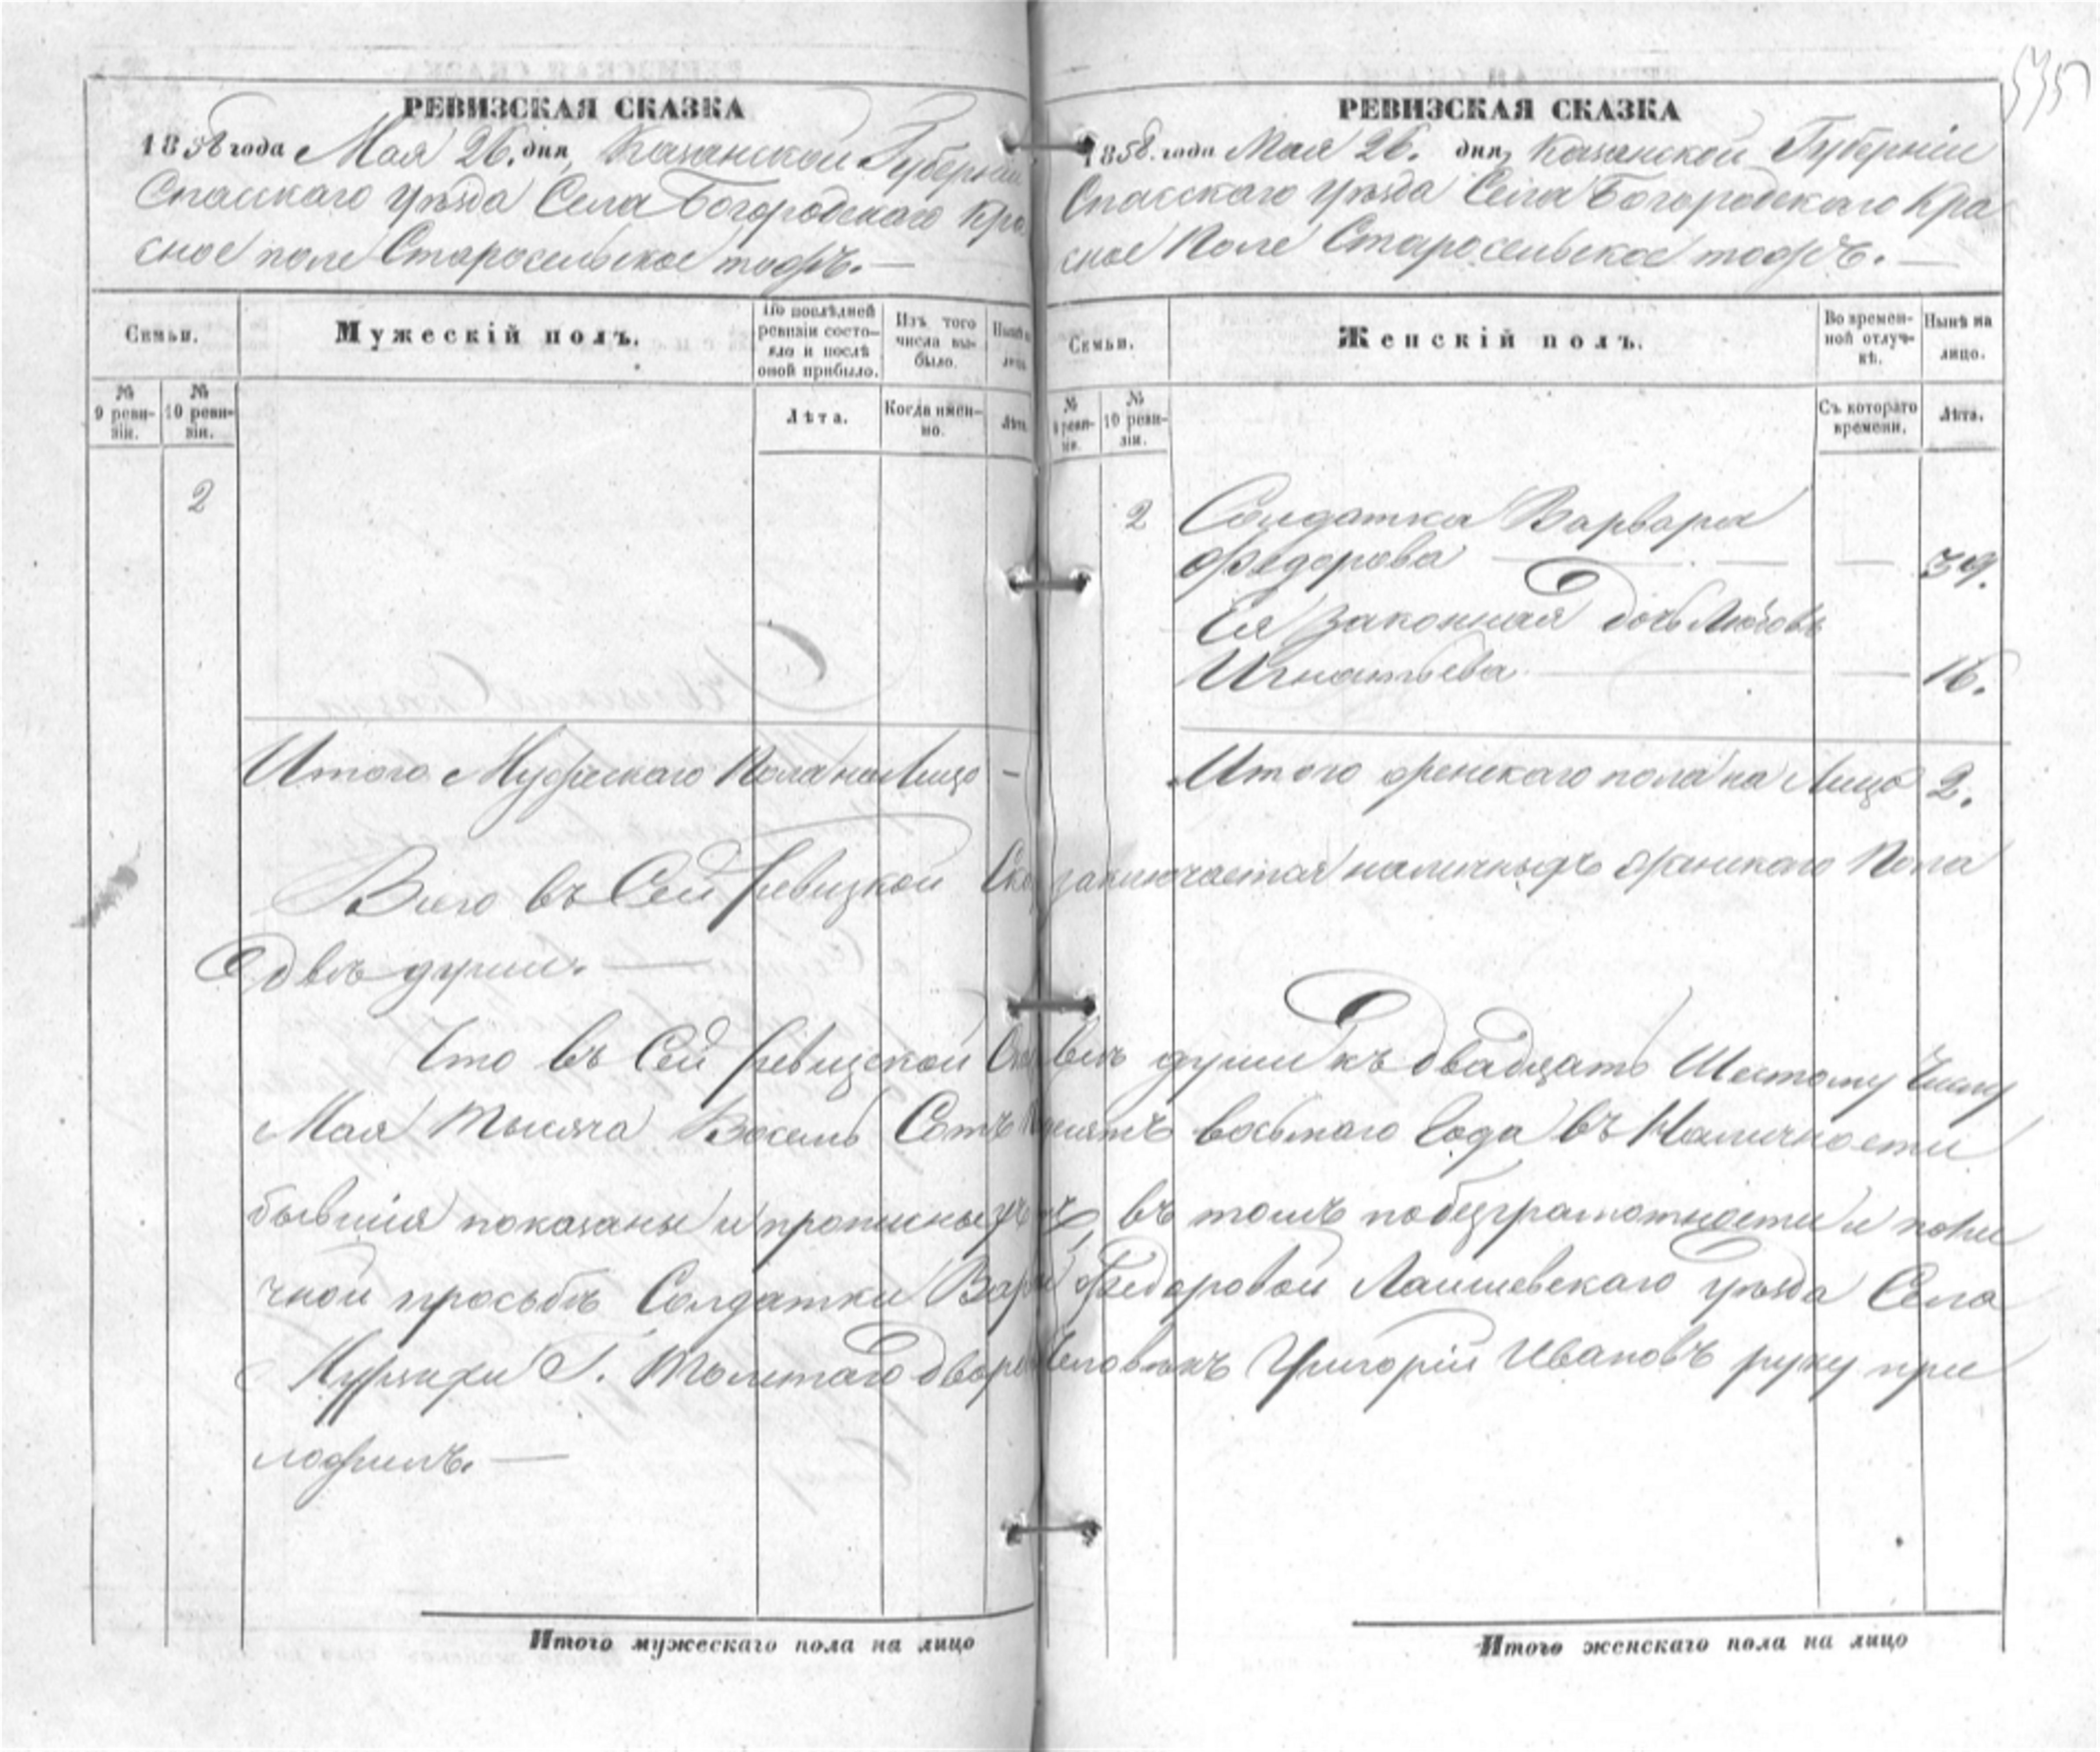 РЕВИЗСКАЯ СКАЗКА
1858 года Мая 26. дня, Казанской Губерніи
Спасскаго уѣзда Села Богородскаго Кра
сное поле Старосельское тожъ. —
Семьи.
Мужескій полъ.
По послѣдней ревизіи состо-
яло и послѣ
оной прибыло.
Изъ того
числа вы-
было.
№
9 реви-
зіи.
№
10 реви-
зіи.
Лѣта.
Когда имен-
но.
Лѣта
2
Итого Мужескаго Пола на Лицо –
Всего въ Сей Ревизкой
двѣ души. —
Что въ Сей Ревизской
Мая Тысяча Восемь Сотъ
бывшія показаны и прописныхъ
чной просьбѣ Солдатки
Г. Толстаго
ложилъ. —
Итого мужескаго пола на лицо
РЕВИЗСКАЯ СКАЗКА
1858. года Мая 26. дня, Казанской Губерніи
Спасскаго уѣзда Села Богородскаго Кра
сное Поле Старосельское тожъ. —
Семьи.
Женскій полъ.
Во времен-
ной отлуч-
кѣ.
Нынѣ на
лицо.
№
9 реви-
зіи.
№
10 реви-
зіи.
Съ котораго
времени.
Лѣта.
2 Солдатка Варвара
Федорова — — — 39.
Ея законная дочь Любовь
Игнатьева — — 16.
Итого женскаго пола на Лицо 2.
заключается наличныхъ женскаго Пола
души къ двадцать Шестому Числу
восьмаго Года въ Наличности
въ томъ по безграмотности и по ли
Федоровой Лаишевскаго уѣзда Села
Человѣкъ Григорій Ивановъ руку при
Итого женскаго пола на лицо